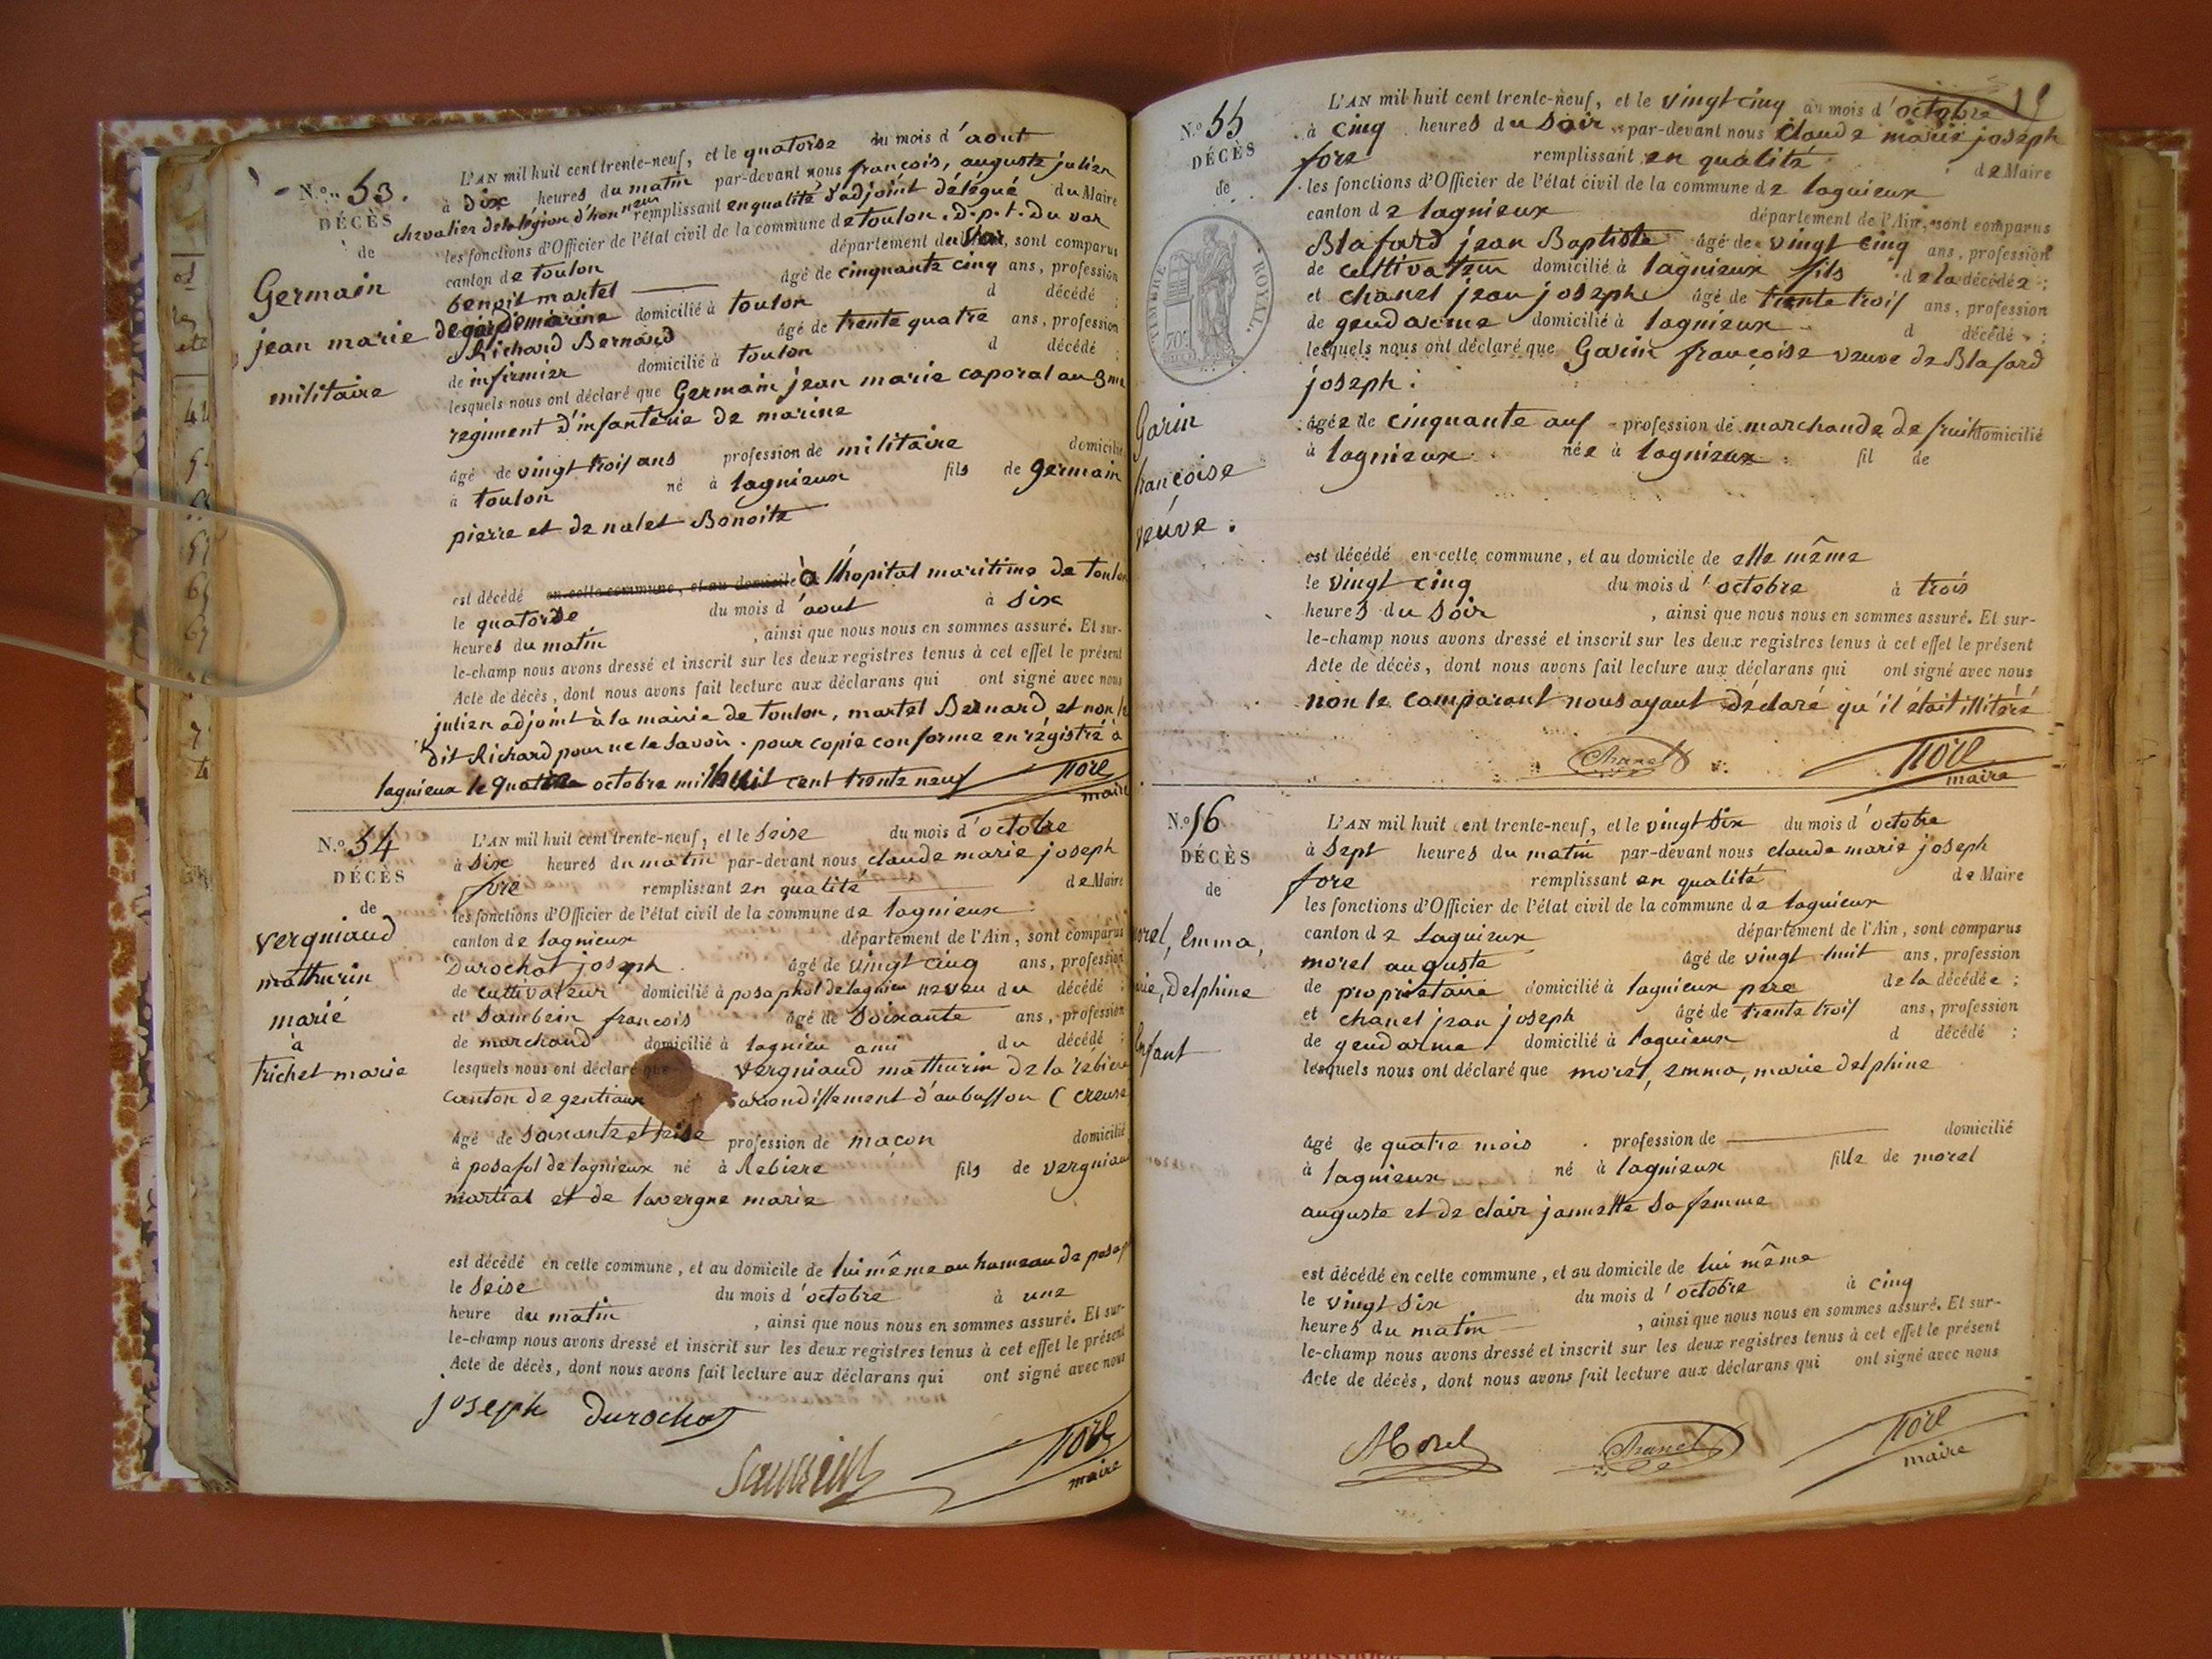 N.º 53.
DÉCÈS
de
Germain
jean marie
militaire
L'AN mil huit cent trente-neuf, et le quatorse du mois d'aout
à dix heures du matin par-devant nous françois, auguste julien
chevalier de la légion d'honneur remplissant en qualité d'adjoint délégué du Maire
les fonctions d'Officier de l'état civil de la commune de toulon. d.p.t. du var
canton de toulon département du Var, sont comparus
benoit martel âgé de cinquante cinq ans, profession
de domicilié à toulon d décédé ;
et Richard Bernard âgé de trente quatre ans, profession
de infirmier domicilié à toulon d décédé ;
lesquels nous ont déclaré que Germain jean marie caporal au 3me
regiment d'infanterie de marine
âgé de vingt trois ans profession de militaire domicilié
à toulon né à lagnieux fils de germain
pierre et de nalet Bonoite
est décédé en cette commune, et au domicile à l'hopital maritime de toulon
le quatorse du mois d'aout à six
heures du matin , ainsi que nous nous en sommes assuré. Et sur-
le-champ nous avons dressé et inscrit sur les deux registres tenus à cet effet le présent
Acte de décès, dont nous avons fait lecture aux déclarans qui ont signé avec nous
julien adjoint à la mairie de toulon, martel Bernard et non le
dit Richard pour ne le savoir. pour copie conforme enrégistré à
lagnieux le octobre mil huit cent trente neuf fore
maire
N.º 54
DÉCÈS
de
vergniaud
mathurin
marié
à
trichet marie
L'AN mil huit cent trente-neuf, et le seise du mois d'octobre
à six heures du matin par-devant nous claude marie joseph
fore remplissant en qualité de Maire
les fonctions d'Officier de l'état civil de la commune de lagnieux
canton de lagnieux département de l'Ain, sont comparus
Durochat joseph âgé de vingt cinq ans, profession
de cultivateur domicilié à posaphol de lagnieu neveu du décédé ;
et Sambein francois âgé de soixante ans, profession
de marchand domicilié à lagnieu ami du décédé ;
lesquels nous ont déclaré que vergniaud mathurin de la rebiere
canton de gentiaux arrondissement d'aubusson (creuse
âgé de soixante et seise profession de maçon domicilié
à posafol de lagnieux né à Rebiere fils de vergniaud
martial et de lavergne marie
est décédé en cette commune, et au domicile de lui même au hameau de posaf
le seise du mois d'octobre à une
heure du matin , ainsi que nous nous en sommes assuré. Et sur-
le-champ nous avons dressé et inscrit sur les deux registres tenus à cet effet le présent
Acte de décès, dont nous avons fait lecture aux déclarans qui ont signé avec nous
joseph durochat
fore
maire
N.º 55
DÉCÈS
de
TIMBRE ROYAL.
Garin
francoise
veuve.
L'AN mil huit cent trente-neuf, et le vingt cinq du mois d'octobre
à cinq heures du soir par-devant nous claude marie joseph
fore remplissant en qualité de Maire
les fonctions d'Officier de l'état civil de la commune de lagnieux
canton de lagnieux département de l'Ain, sont comparus
Blafard jean Baptiste âgé de vingt cinq ans, profession
de cultivateur domicilié à lagnieux fils de la décédée ;
et chanel jean joseph âgé de trente trois ans, profession
de gendarme domicilié à lagnieux d décédé ;
lesquels nous ont déclaré que Garin françoise veuve de Blafard
joseph.
âgée de cinquante ans profession de marchande de fruit domicilié
à lagnieux née à lagnieux fil de
est décédé en cette commune, et au domicile de elle même
le vingt cinq du mois d'octobre à trois
heures du soir , ainsi que nous nous en sommes assuré. Et sur-
le-champ nous avons dressé et inscrit sur les deux registres tenus à cet effet le présent
Acte de décès, dont nous avons fait lecture aux déclarans qui ont signé avec nous
non le comparant nous ayant déclaré qu'il était illitéré
Chanel fore
maire
N.º 56
DÉCÈS
de
orel, Emma,
rie, Delphine
Enfant
L'AN mil huit cent trente-neuf, et le vingt six du mois d'octobre
à sept heures du matin par-devant nous claude marie joseph
fore remplissant en qualité de Maire
les fonctions d'Officier de l'état civil de la commune de lagnieux
canton de Lagnieux département de l'Ain, sont comparus
morel auguste âgé de vingt huit ans, profession
de propriétaire domicilié à lagnieux pere de la décédée ;
et chanel jean joseph âgé de trente trois ans, profession
de gendarme domicilié à lagnieux d décédé ;
lesquels nous ont déclaré que morel, emma, marie delphine
âgé de quatre mois profession de domicilié
à lagnieux né à lagnieux fille de morel
auguste et de clair jannette sa femme
est décédé en cette commune, et au domicile de lui même
le vingt six du mois d'octobre à cinq
heures du matin , ainsi que nous nous en sommes assuré. Et sur-
le-champ nous avons dressé et inscrit sur les deux registres tenus à cet effet le présent
Acte de décès, dont nous avons fait lecture aux déclarans qui ont signé avec nous
AMorel Chanel fore
maire